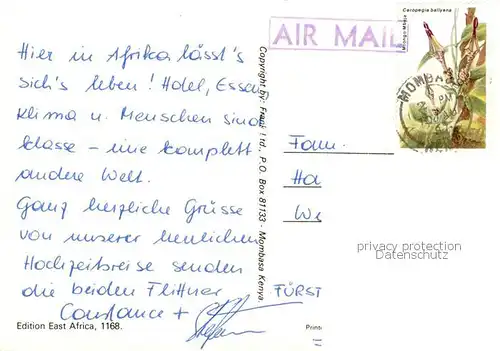 Hier in Afrika lässt's
sich's leben! Hotel, Essen
Klima u. Menschen sind
klasse - eine komplett
andere Welt.
Ganz herzliche Grüsse
von unserer herrlichen
Hochzeitsreise senden
die beiden Flittner
Constance + Stefan
Edition East Africa, 1168.
Copyright by: Frani Ltd., P.O. Box 81133 - Mombasa Kenya.
AIR MAIL
Ceropegia ballyana
MOMBASA
Fam.
Ha
We
FÜRST
Printe
privacy protection
Datenschutz